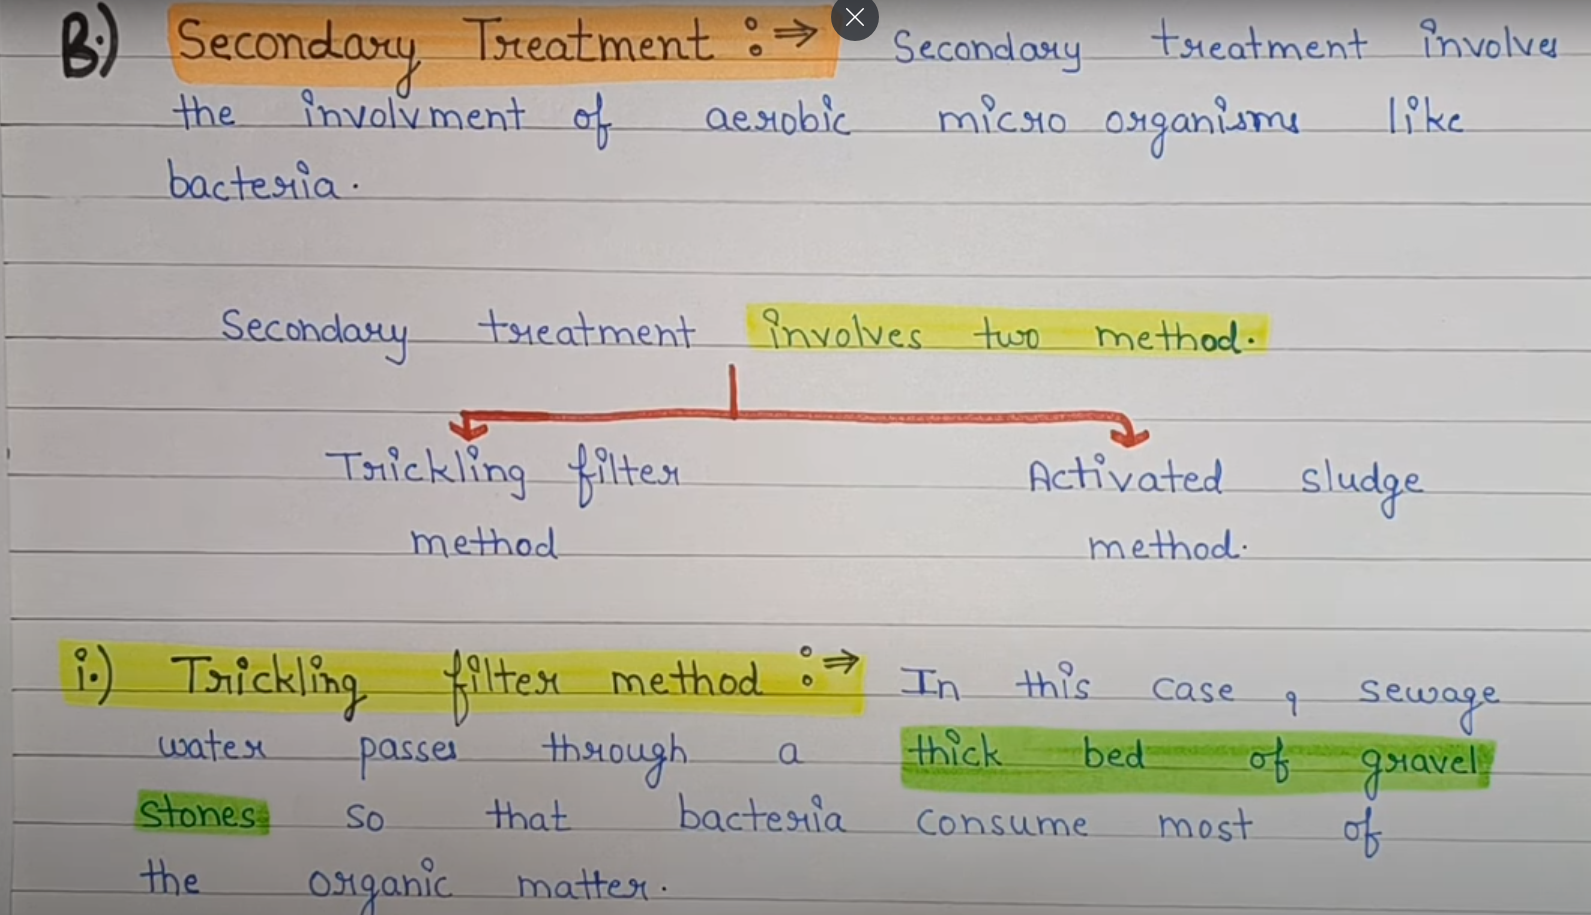 B.) Secondary Treatment :⇒ Secondary treatment involves
the involvment of aerobic micro organisms like
bacteria.
Secondary treatment involves two method.
Trickling filter Activated sludge
method method.
i.) Trickling filter method :⇒ In this case, sewage
water passes through a thick bed of gravel
stones so that bacteria consume most of
the organic matter.